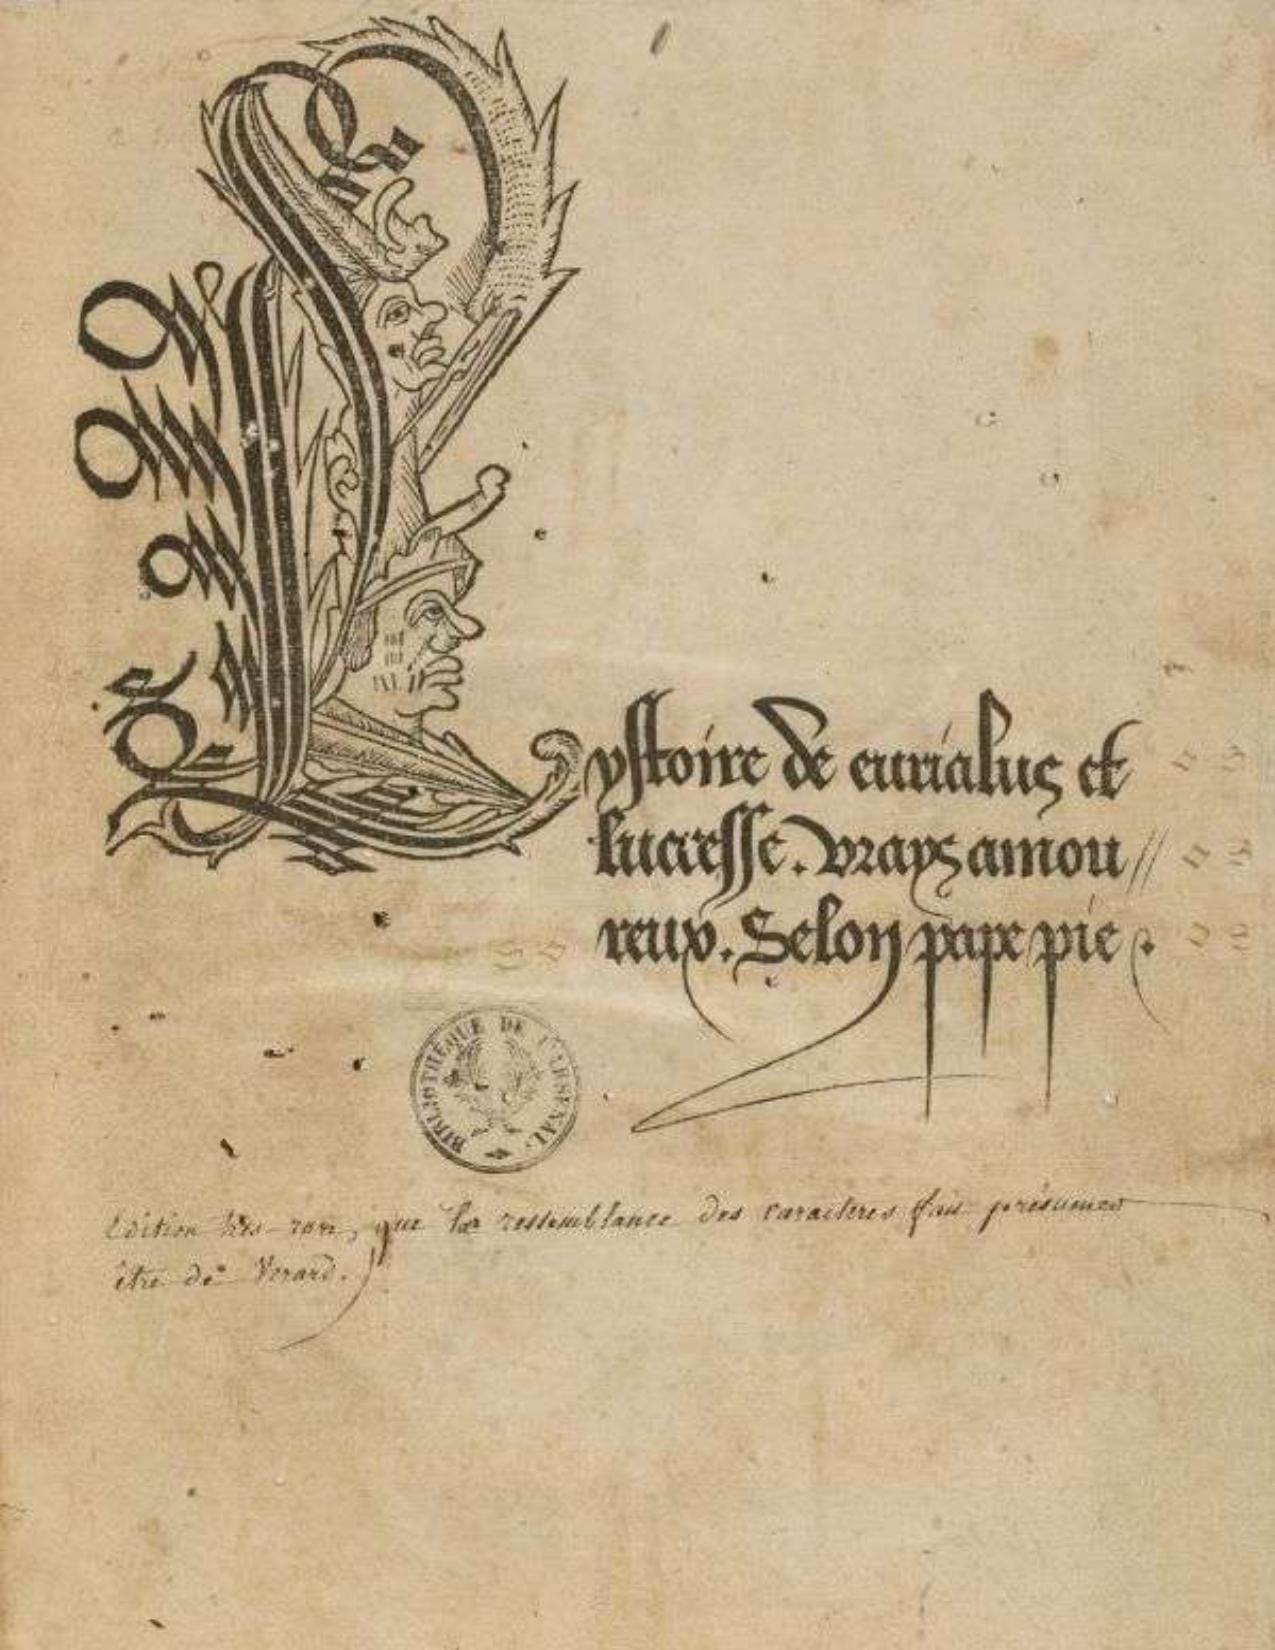 Lystoire de eurialus et
lucresse. vrays amou//
reux. Selon pape pie.
BIBLIOTHÈQUE DE L'ARSENAL
Edition très-rare, que la ressemblance des caracteres fait présumer
être de Verard.